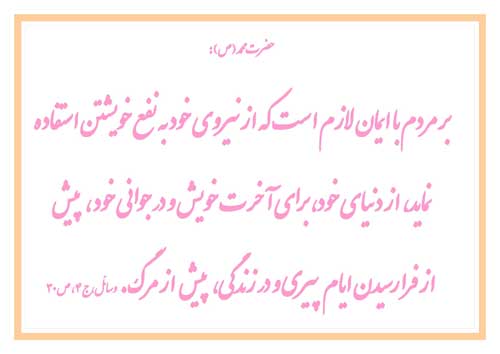 حضرت محمد (ص):
بر مردم با ایمان لازم است که از نیروی خود به نفع خویشتن استفاده
نماید، از دنیای خود، برای آخرت خویش و در جوانی خود، پیش
از فرا رسیدن ایام پیری و در زندگی، پیش از مرگ. وسائل، ج ۴، ص ۳۰